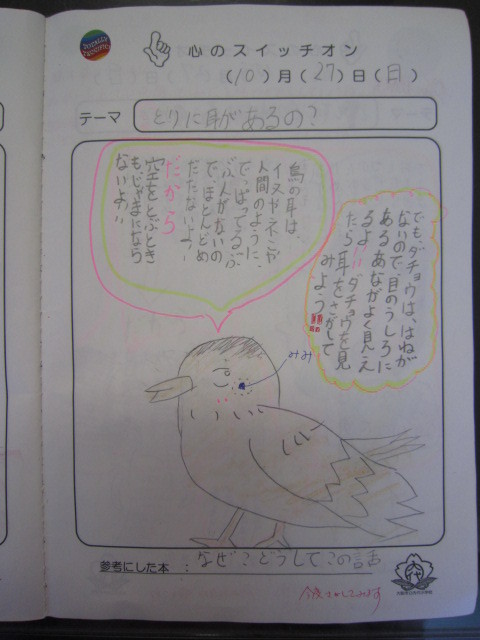 心のスイッチオン
(10)月(27)日(日)
テーマ
とりに耳があるの？
鳥の耳は、
イヌやネコが
人間のように、
でっぱってるぶ
ぶんがないの
で、ほとんどめ
だたないよー
だから
空をとぶとき
もじゃまになら
ないよ!!
でも、ダチョウは、はねが
ないので、目のうしろに
あるあながよく見え
るよ!!ダチョウを見
たら耳をさがして
みよう
みみ
参考にした本 : なぜ?どうしてこの話